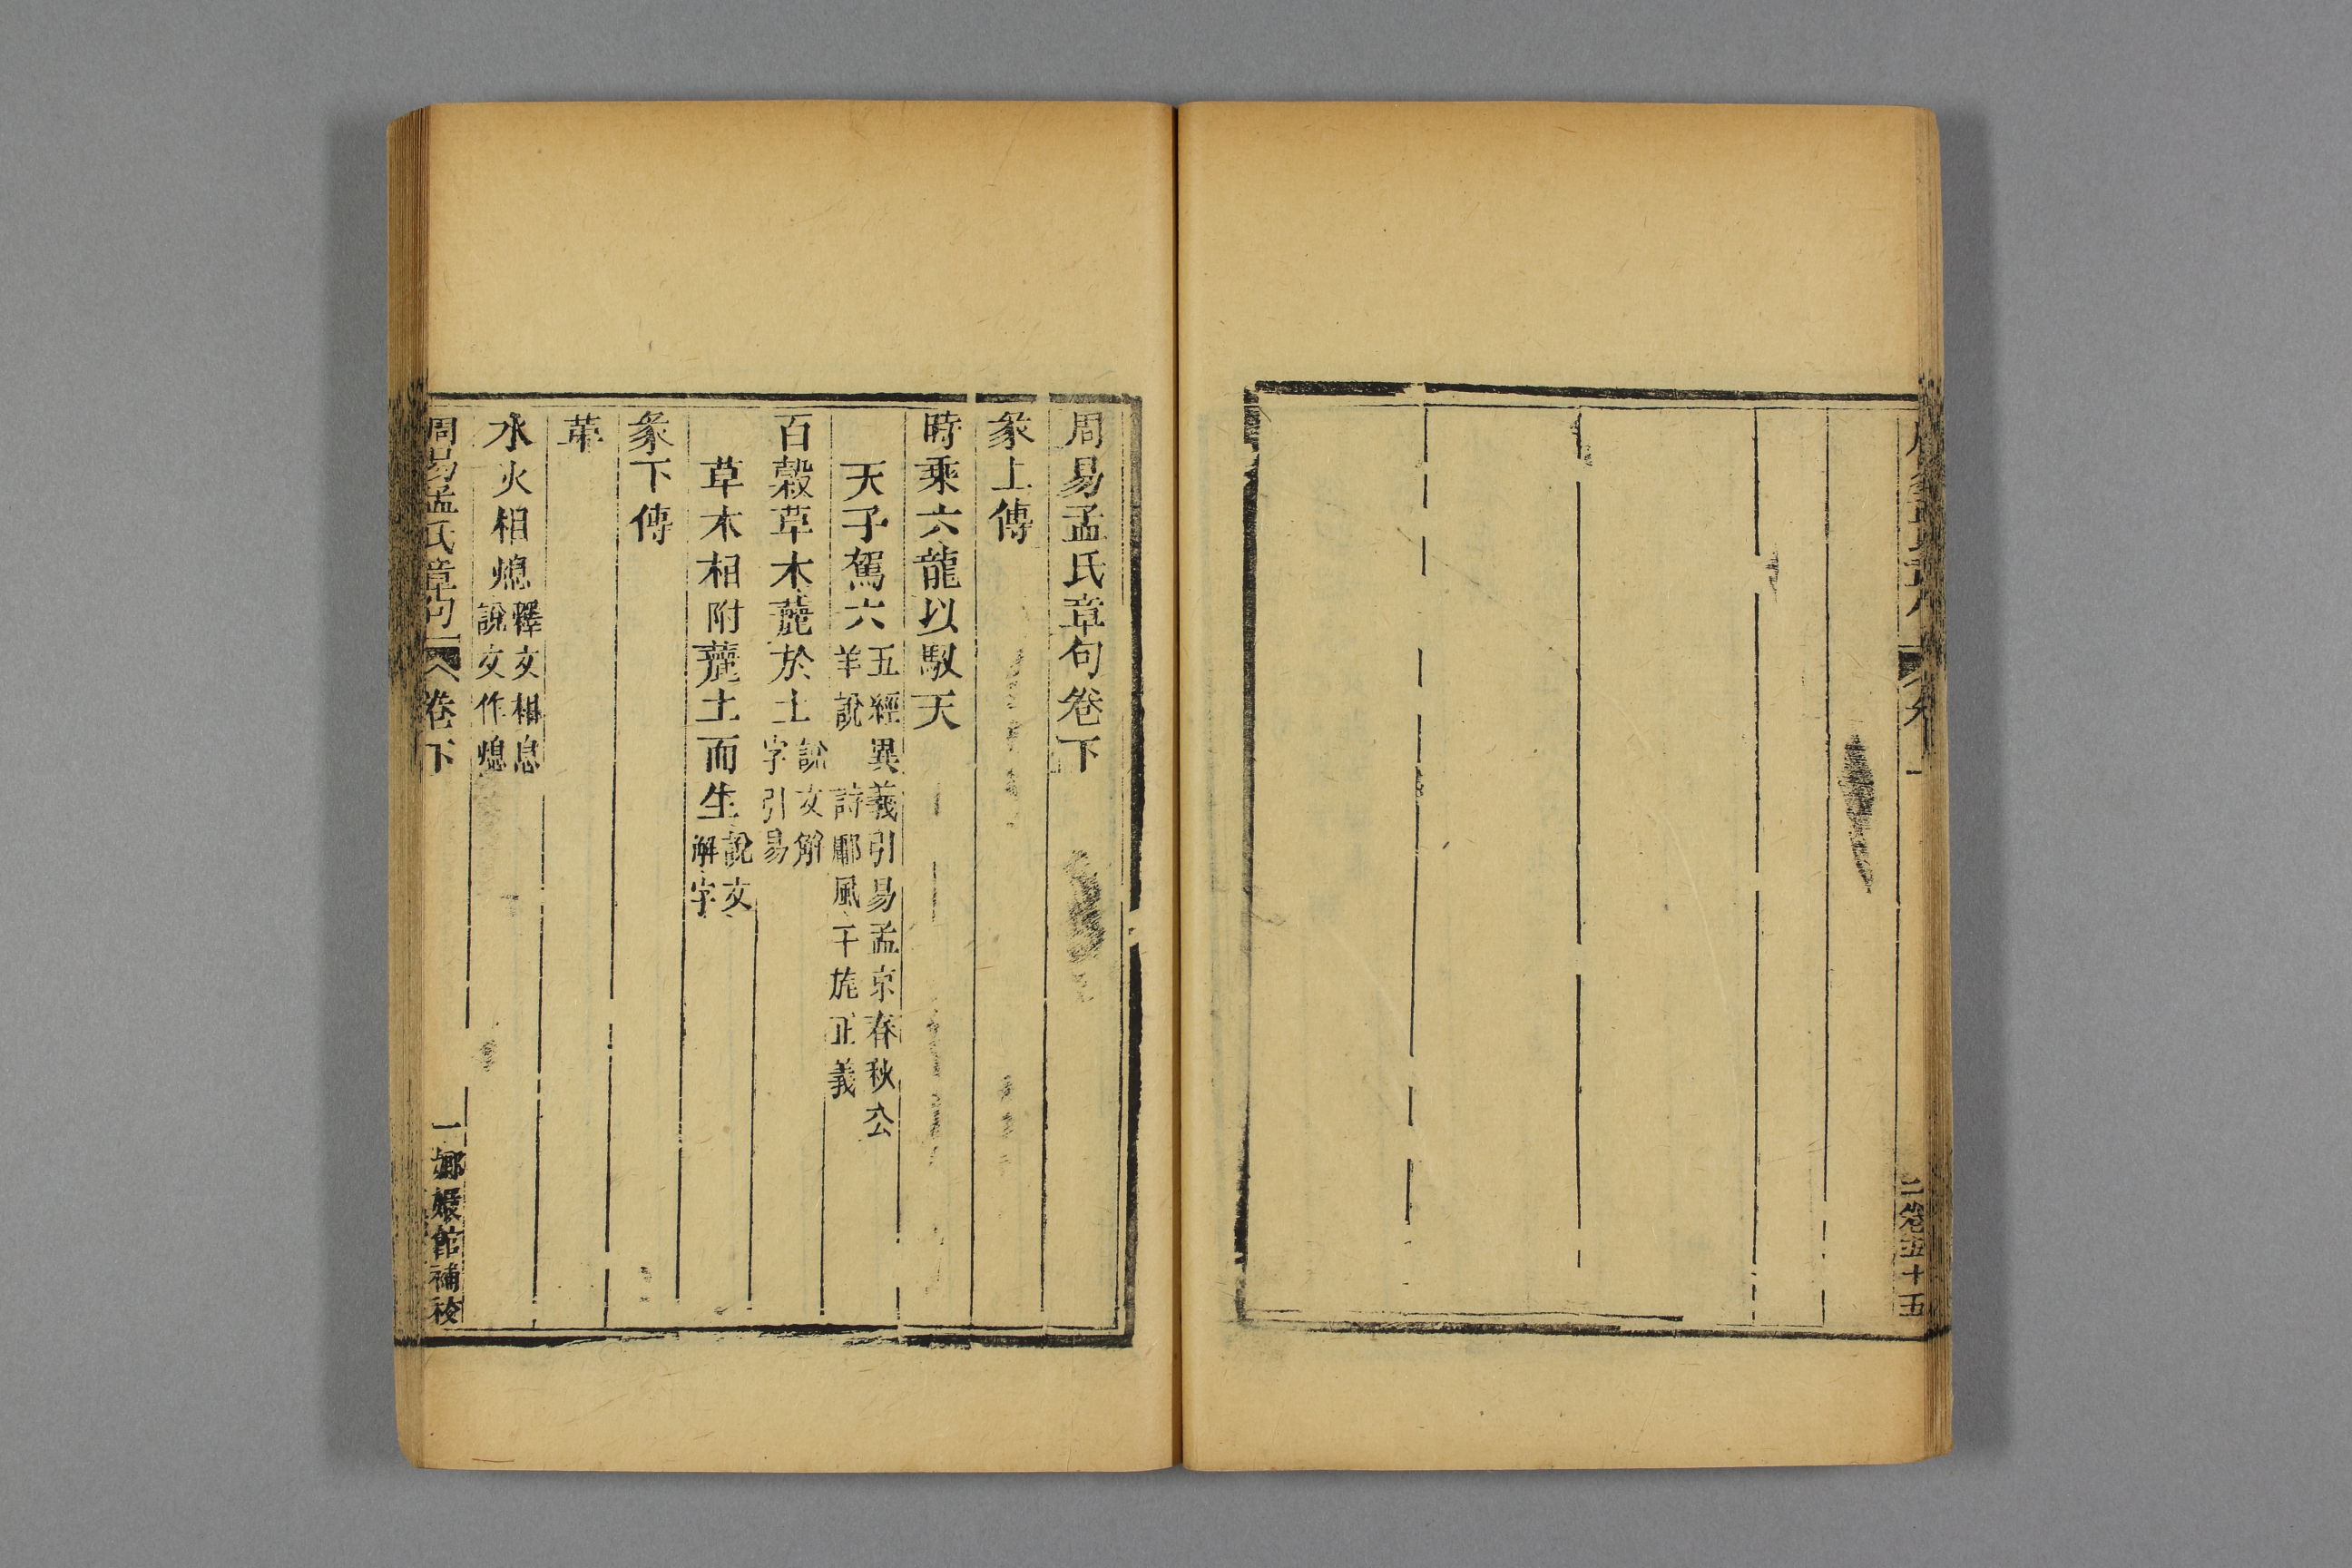 二卷五十五
周易孟氏章句卷下
彖上傳
時乘六龍以馭天
天子駕六五經異義引易孟京春秋公羊說 詩鄘風干旄正義
百穀草木䕻於土說文解字引易
草木相附䕻土而生說文解字
彖下傳
革
水火相熄釋文相息說文作熄
周易孟氏章句 卷下 一 嫏嬛館補校